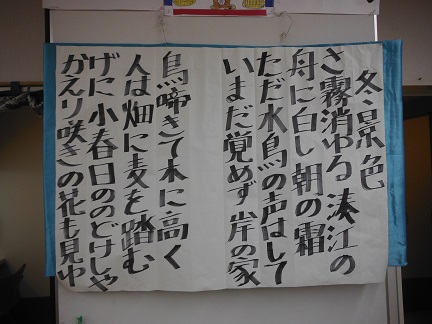 冬景色
さ霧消ゆる湊江の
舟に白し朝の霜
ただ水鳥の声はして
いまだ覚めず岸の家
鳥啼きて木に高く
人は畑に麦を踏む
げに小春日ののどけしや
かえり咲きの花も見ゆ